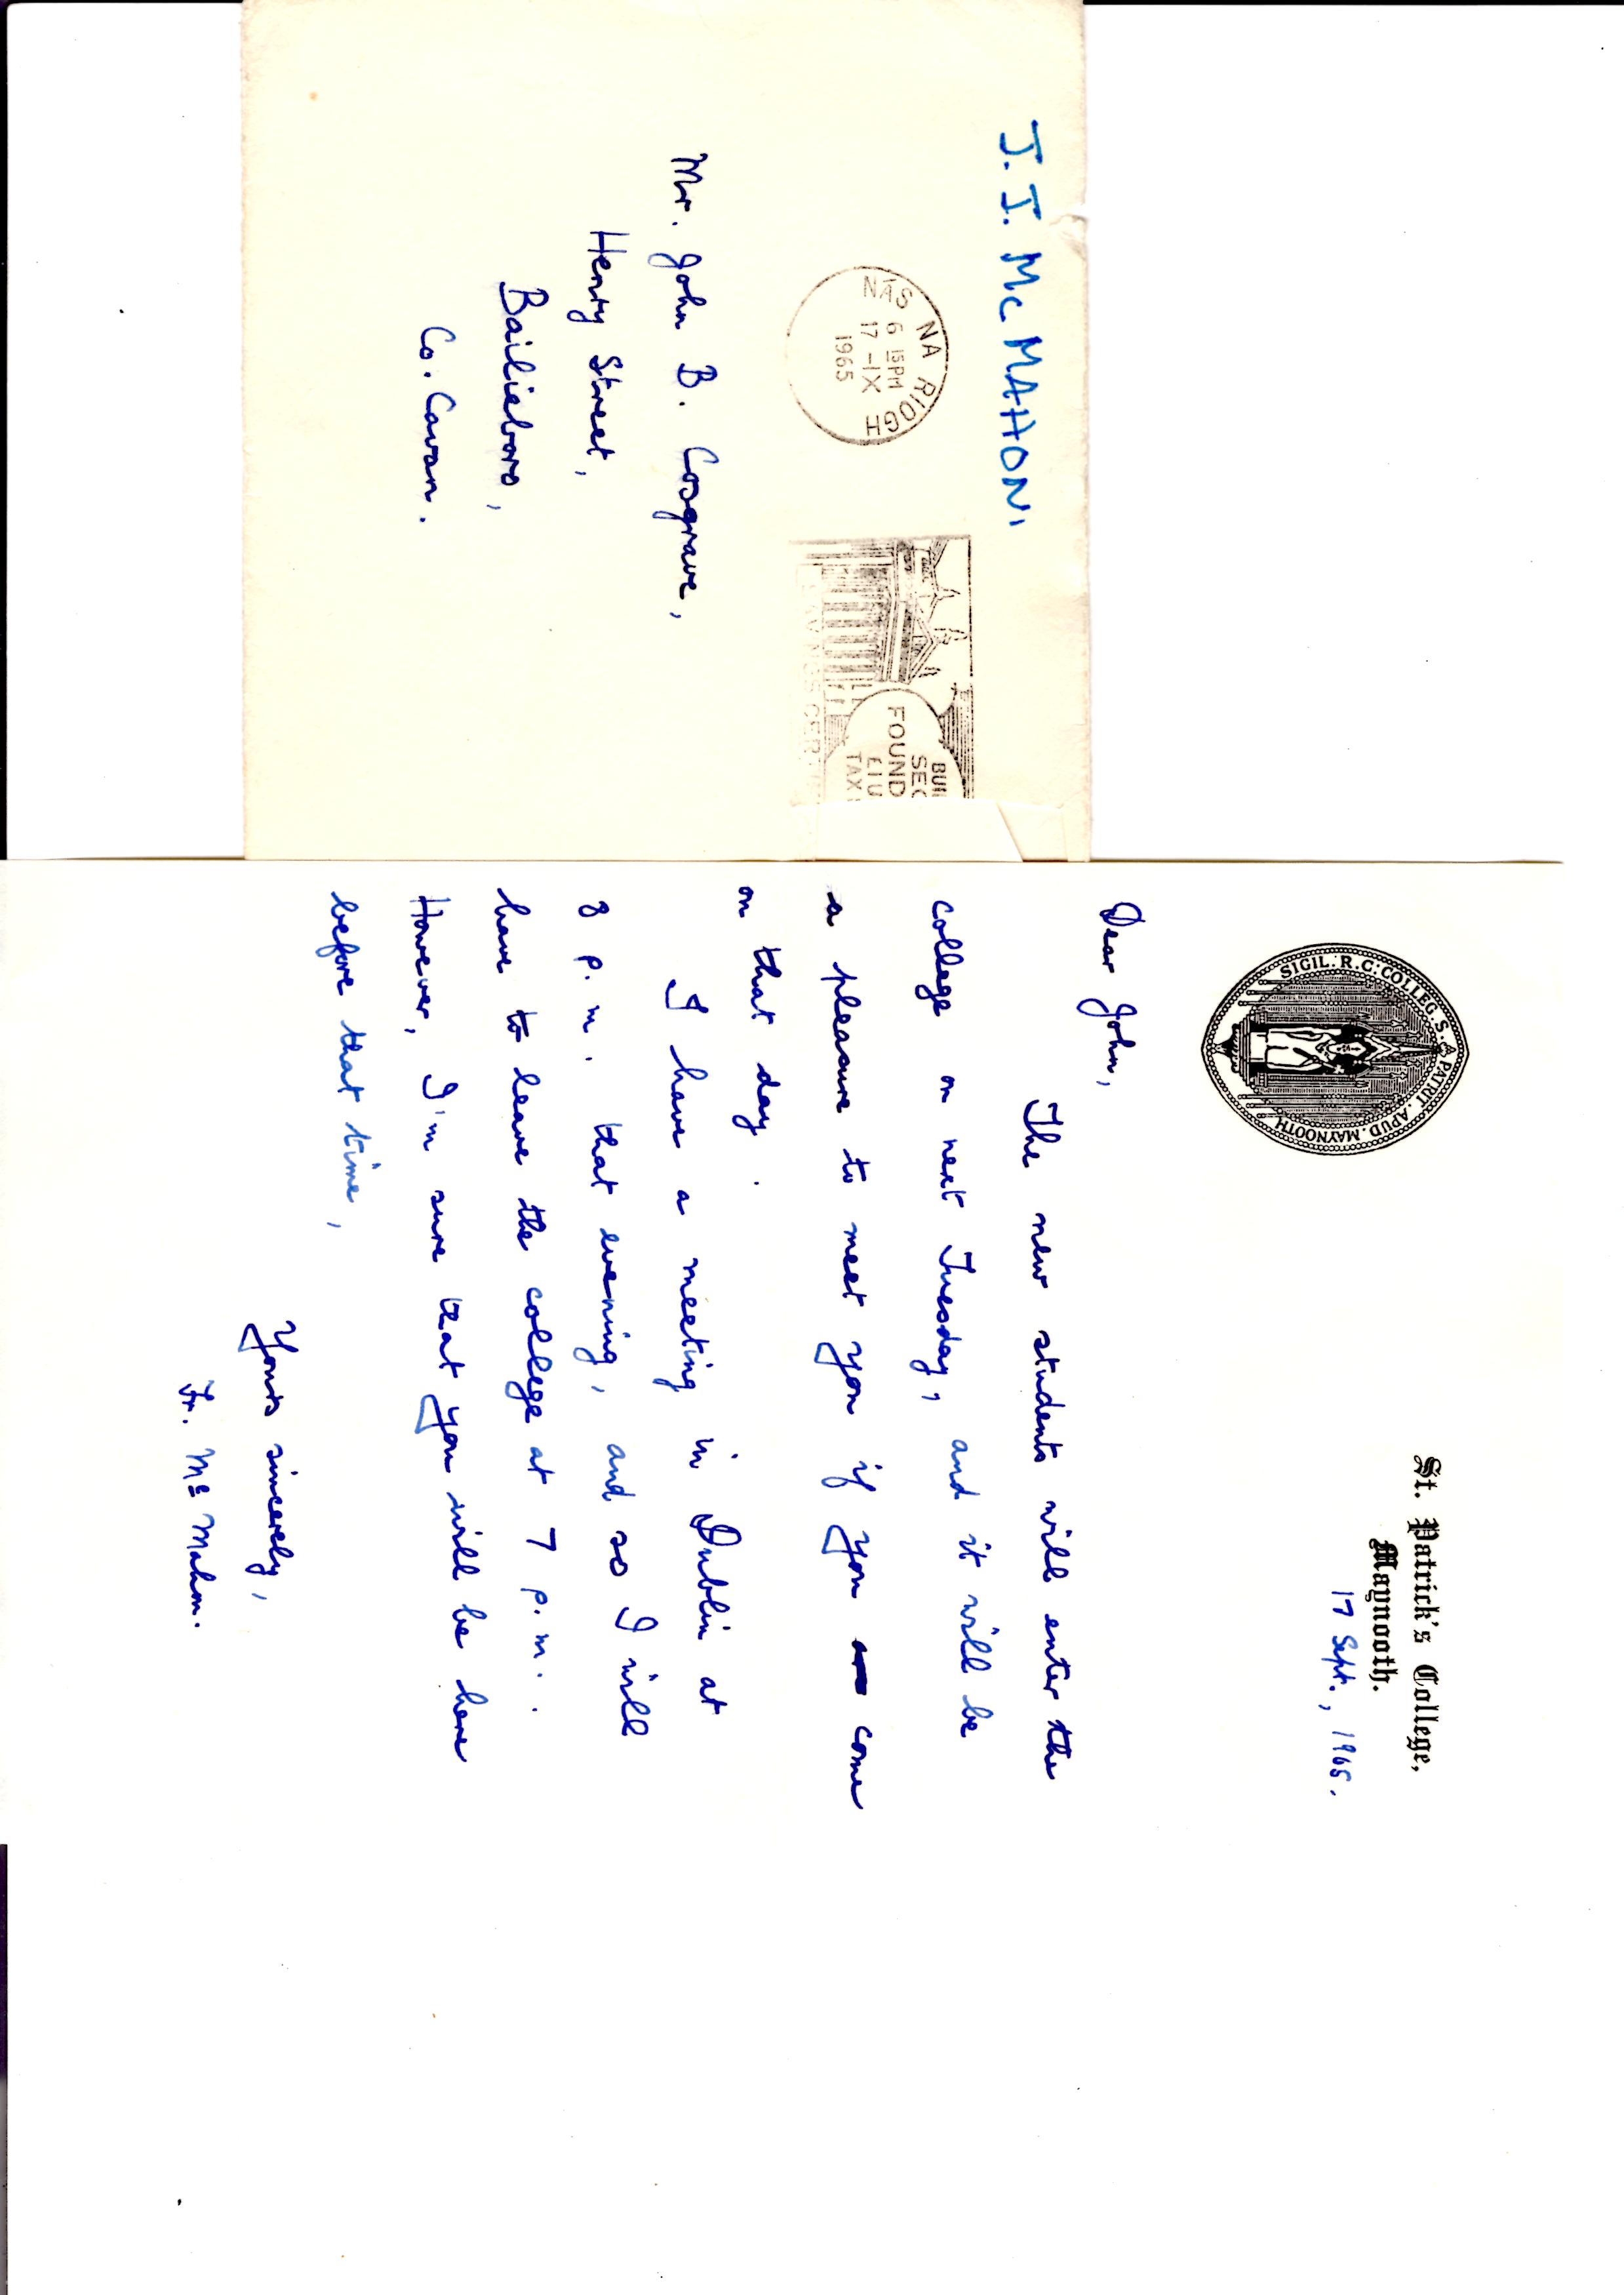 J. J. Mc MAHON.
NÁS NA RIOGH
6 15PM
17 -IX
1965
SEC
FOUND
£1 U
TAX
SAVINGS CERT
Mr. John B. Cosgrave,
Henry Street,
Bailieboro,
Co. Cavan.
SIGIL: R.C: COLLEG. S. PATRIT. APUD. MAYNOOTH
St. Patrick's College,
Maynooth.
17 Sept., 1965.
Dear John,
The new students will enter the
college on next Tuesday, and it will be
a pleasure to meet you if you come
on that day.
I have a meeting in Dublin at
8 p.m. that evening, and so I will
have to leave the college at 7 p.m..
However, I'm sure that you will be here
before that time,
Yours sincerely,
Fr. Mc Mahon.